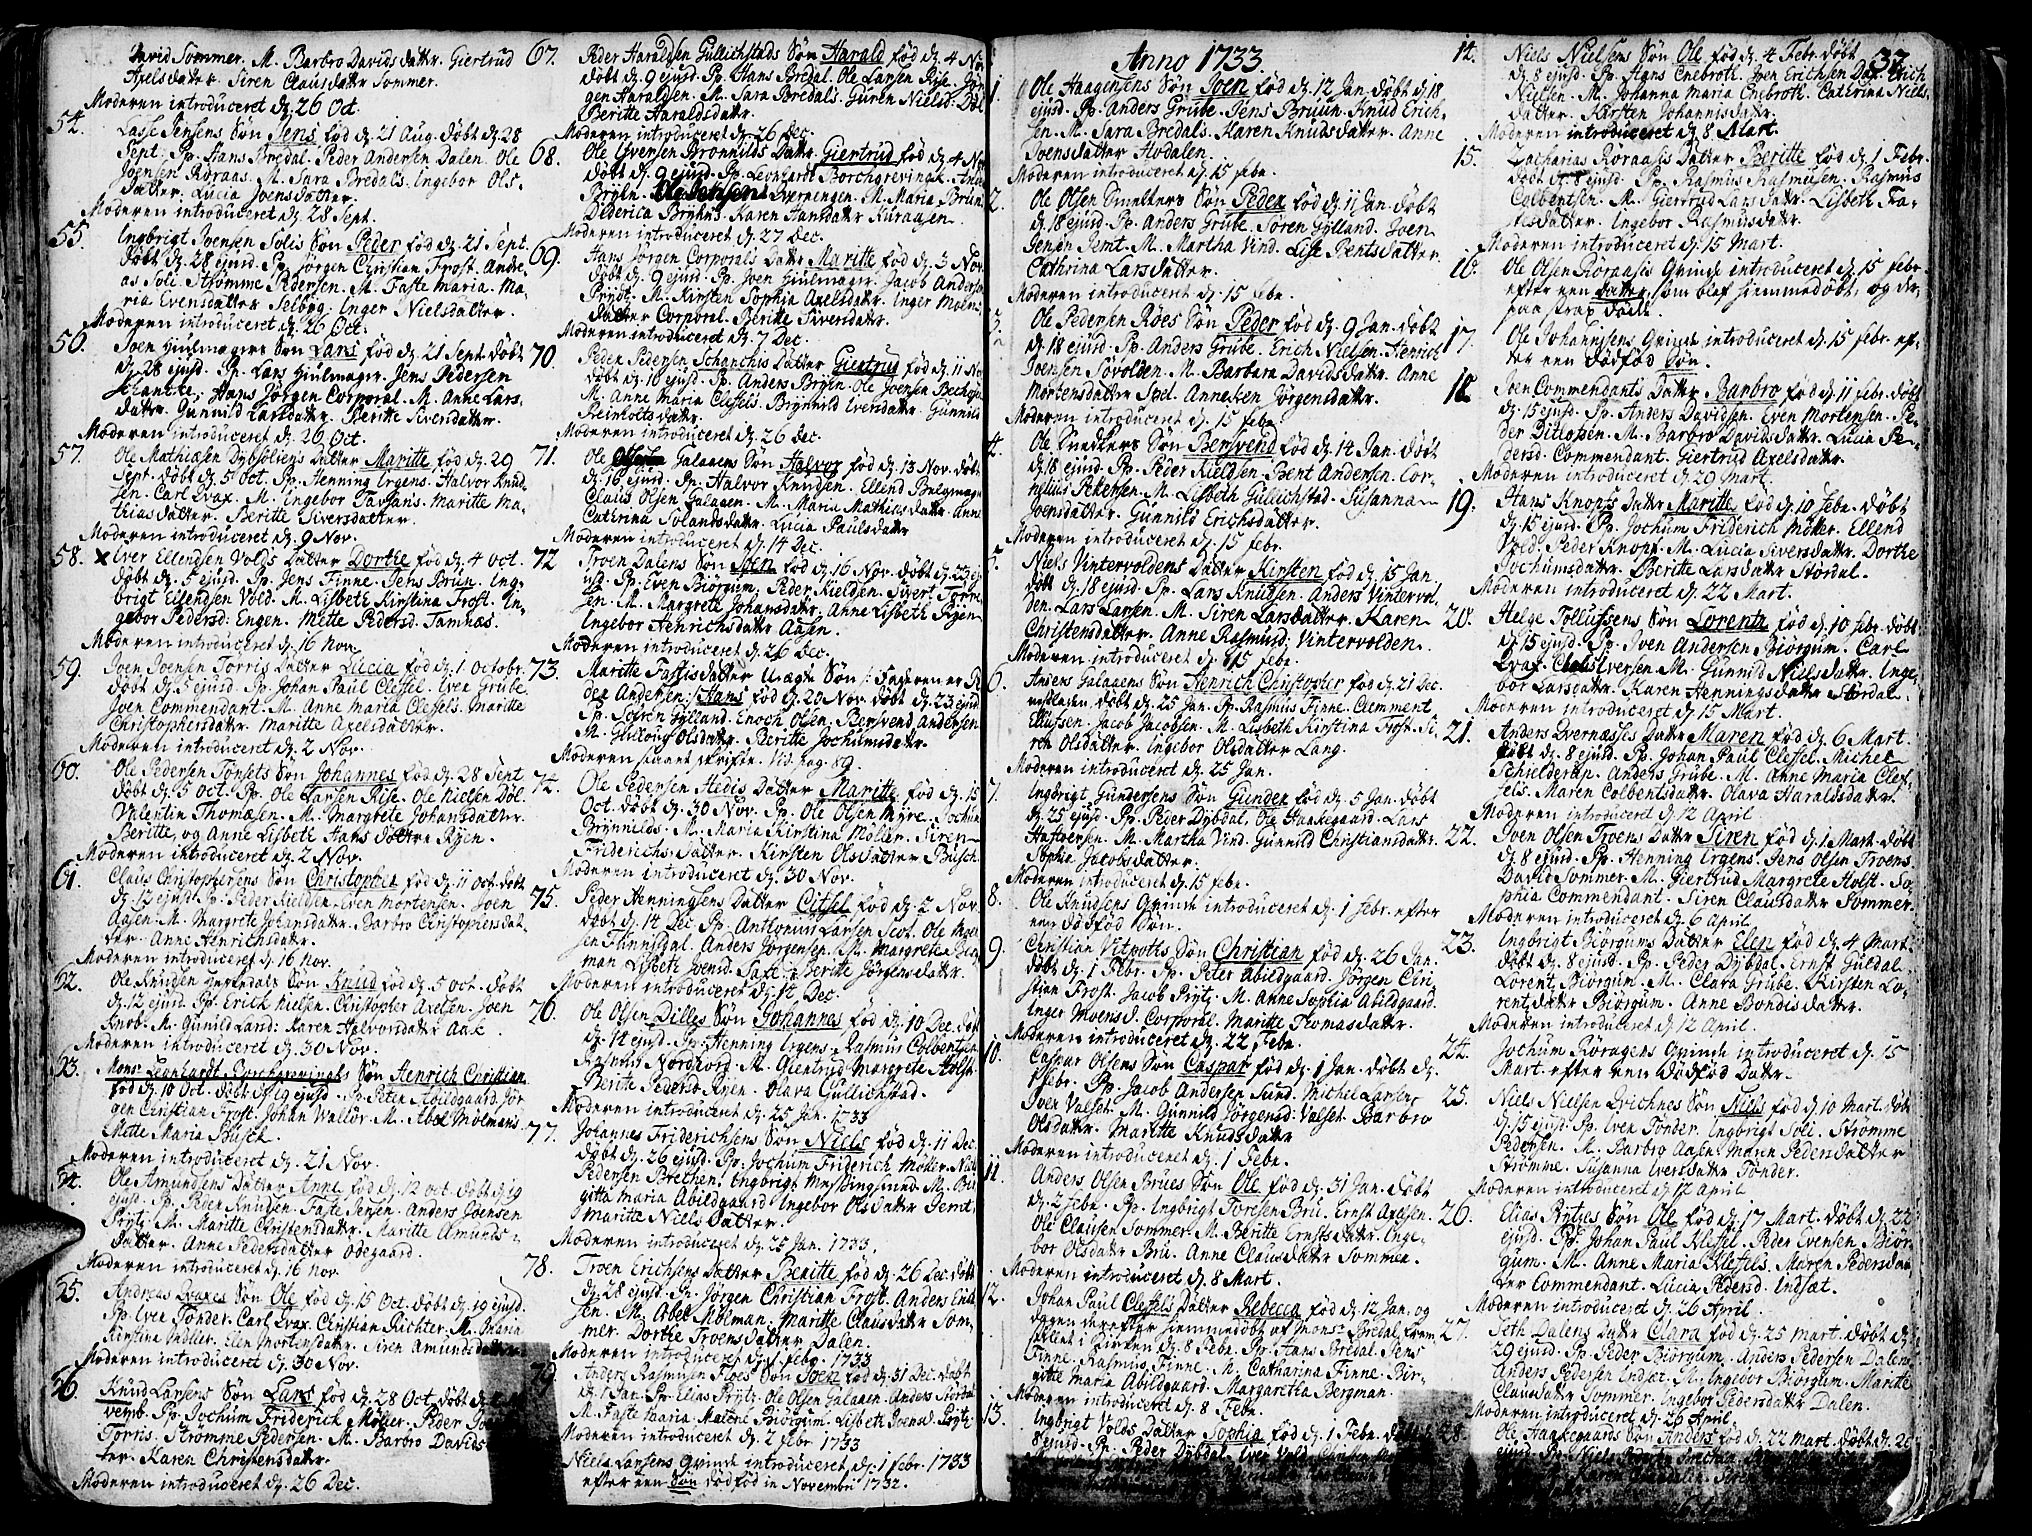 David Sommer. M. Barbro Davidsdattr. Giertrud
Axelsdatter. Siren Clausdattr Sommer.
Moderen introduceret dʒ. 26 Oct.
54. Lasse Jensens Søn Jens fød dʒ. 21 Aug. døbt dʒ. 28
Sept. Pp. Hans Bredal. Peder Andersen Dalen. Ole
Joensen Røraas. M. Sara Bredals. Ingebor Ols-
datter. Lucia Joensdatter.
Moderen introduceret dʒ. 28 Sept.
55. Ingbrigt Joensen Solis Søn Peder fød dʒ. 21 Sept.
døbt dʒ. 28 ejusd. Pp. Jørgen Christian Frost. Andre-
as Soli. Strømme Pedersen. M. Faste Maria. Ma-
ria Evensdatter Selbyg. Inger Nielsdatter.
Moderen introduceret dʒ. 26 Oct.
56. Joen Hiulmagers Søn Lars fød dʒ. 21 Sept. døbt
dʒ. 28 ejusd. Pp. Lars Hiulmager. Jens Pedersen
Schanche. Hans Jørgen Corporal. M. Anne Lars-
datter. Gunnild Larsdatter. Beritte Siversdatter.
Moderen introduceret dʒ. 26 Oct.
57. Ole Mathiæsen Dybsliens Datter Maritte fød dʒ. 29
Sept. døbt dʒ. 5 Oct. Pp. Henning Irgens. Halvor Knud-
sen. Carl Qvax. M. Ingebor Tavsans. Maritte Ma-
thiasdatter. Beritte Siversdatter.
Moderen introduceret dʒ. 9 Nov.
58. Iver Ellendsen Volds Datter Dorthe fød dʒ. 4 Oct.
døbt dʒ. 5 ejusd. Pp. Jens Finne. Jens Brun. Ing-
brigt Ellendsen Vold. M. Lisbeth Kirstina Frost. In-
gebor Pedersd: Engen. Mette Pedersd. Tamnæs.
Moderen introduceret dʒ. 16 Nov.
59. Joen Joensen Torris Datter Lucia fød dʒ. 1 Octobr.
døbt dʒ. 5 ejusd. Pp. Johan Paul Clessel. Iver Grube.
Joen Commendant. M. Anne Maria Clessels. Maritte
Christophersdatr. Maritte Axelsdatter.
Moderen introduceret dʒ. 2 Nov.
60. Ole Pedersen Tønsets Søn Johannes fød dʒ. 28 Sept
døbt dʒ. 5 Oct. Pp. Ole Larsen Rise. Ole Nielsen Døl.
Valentin Thomæsen. M. Margrete Johansdatter.
Beritte, og Anne Lisbeth Hansdøttre Ryen.
Moderen introduceret dʒ. 2 Nov.
61. Claus Christophersens Søn Christopher fød dʒ. 11 Oct. døbt
dʒ. 12 ejusd. Pp. Peder Kieldsen. Even Mortensen. Joen
Aasen. M. Margrete Johansdatter. Barbro Christophersdat-
ter. Anne Henrichsdattr.
Moderen introduceret dʒ. 16 Nov.
62. Ole Knudsen Søn Knud fød dʒ. 5 Oct. døbt
dʒ. 12 ejusd. Pp. Erich Nielsen. Christopher Axelsen. Joen
Knob. M. Gunild Land: Karen Halvorsdattr Aak.
Moderen introduceret dʒ. 30 Nov.
63. Monsr Leonhardt Borchgrevingks Søn Henrich Christian
fød dʒ. 10 Oct. døbt dʒ. 19 ejusd. Pp. Peter Abildgaard. Jør-
gen Christian Frost. Johan Wallür. M. Abel Mølmans.
Mette Maria Busch.
Moderen introduceret dʒ. 21 Nov.
64. Ole Amundsens Datter Anne fød dʒ. 12 Oct. døbt dʒ. 19
ejusd. Pp. Peder Knudsen. Faste Jensen. Anders Joensen
Prytz. M. Maritte Christensdattr. Maritte Amunds-
datter. Anne Pedersdatter Odegaard.
Moderen introduceret dʒ. 16 Nov.
65. Andreas Qvaxes Søn Ole fød dʒ. 15 Oct. døbt dʒ. 19 ejusd.
Pp. Iver Tønder. Carl Qvax. Christian Richter. M. Maria
Kirstina Møller. Elen Mortensdatr. Siren Amundsdatter
Moderen introduceret dʒ. 30 Nov.
66. Knud Larsens Søn Lars fød dʒ. 28 Oct. døbt dʒ. No-
vemb. Pp. Jochum Friderich Møller. Peder Jo
Torris. Strømme Pedersen. M. Barbro Davids
ter. Karen Christensdatter.
Moderen introduceret dʒ. 26 Dec.
67. Peder Haraldsen Gullichstads Søn Harald fød dʒ. 4 No
døbt dʒ. 9 ejusd. Pp. Hans Bredal. Ole Larsen Rise. Jør-
gen Haraldsen. M. Sara Bredals. Guren Nielsd: Døl
Beritte Haraldsdattr.
Moderen introduceret dʒ. 26 Dec.
68. Ole Iversen Brønnilds Dattr. Giertrud fød dʒ. 4 Nov
døbt dʒ. 9 ejusd. Pp. Leonhardt Borchgrevingk. And
Bryln. Ole Jensen Sverningen. M. Maria Bruns
Dederica Bryhns. Karen Hansdattr Kuraasen.
Moderen introduceret dʒ. 27 Dec.
69. Hans Jørgen Corporals Dattr Maritte fød dʒ. 3 Nov.
døbt dʒ. 9 ejusd. Pp. Joen Hiulmager. Jacob Andersen
Prydz. M. Kirsten Sophia Axelsdattr. Inger Moens-
datter Corporal. Beritte Siversdattr.
Moderen introduceret dʒ. 7 Dec.
70. Peder Pedersen Schanchis Datter Giertrud fød dʒ. 11 Nov
døbt dʒ. 16 ejusd. Pp. Anders Bryln. Ole Joensen Bech
M. Anne Maria Clessels. Brynnild Iversdattr. Gunnild
Reinholtsdattr.
Moderen introduceret dʒ. 26 Dec.
71. Ole Galaaens Søn Halvor fød dʒ. 13 Nov. døbt
dʒ. 16 ejusd. Pp. Halvor Knudsen. Ellend Belgmager
Claus Olsen Galaaen. M. Maria Mathiasdattr. Anne
Cathrina Solandsdattr. Lucia Paulsdattr
Moderen introduceret dʒ. 14 Dec.
72 Troen Dalens Søn Joen fød dʒ. 16 Nov. døbt dʒ. 23 ej
usd. Pp. Even Biørgum. Peder Kieldsen. Sivert Torre-
sen. M. Margrete Johansdattr. Anne Lisbeth Ryen
Ingebor Henrichsdattr Aasen.
Moderen introduceret dʒ. 26 Dec.
73. Maritte Fastisdatter Uægte Søn /: Faderen er P
der Andersen :/ Hans fød dʒ. 20 Nov. døbt dʒ. 23 ejusd
Pp. Søfren Gylland. Enoch Olsen. Bersvend Andersen
M. Gullov Olsdattr. Beritte Jochumsdattr.
Moderen publ. skrifte. Vid. pag. 89.
74. Ole Pedersen Hedis Datter Maritte fød dʒ. 15
Oct. døbt dʒ. 30 Nov. Pp. Ole Olsen Myre. Jochum
Brynnilds. M. Maria Kirstina Møller. Siren
Friderichs-datter. Kirsten Olsdatter Busch.
Moderen introduceret dʒ. 30 Nov.
75. Peder Henningsens Datter Citsel fød dʒ. 2 Nov.
døbt dʒ. 14 Dec. Pp. Anthonius Larsen Scot. Ole Moen
sen Finnisdal. Anders Jørgensen. M. Margrete Ber
man. Lisbeth Joensd. Saxe. Beritte Jørgensdattr.
Moderen introduceret dʒ. 14 Dec.
76. Ole Olsen Dilles Søn Johannes fød dʒ. 10 Dec. døbt
dʒ. 14 ejusd. Pp. Henning Irgens. Rasmus Colbentsen.
Rasmus Nordhord. M. Giertrud Margrete Holst.
Berite Pedersd. Ryen. Olava Gullichstad.
Moderen introduceret dʒ. 25 Jan. 1733
77. Johannes Friderichsens Søn Niels fød dʒ. 11 Dec.
døbt dʒ. 26 ejusd. Pp. Jochum Friderich Møller. Niels
Pedersen Brechen. Ingbrigt Messingsmed. M. Bir
gitta Maria Abildgaard. Ingebor Olsdatter Jemt.
Maritte Nielsdatter.
Moderen introduceret dʒ. 25 Jan. 1733.
78. Troen Erichsens Datter Beritte fød dʒ. 26 Dec. døbt
dʒ. 28 ejusd. Pp. Jørgen Christian Frost. Anders Erich
sen. M. Abel Mølman. Maritte Clausdatter Som-
mer. Dorthe Troensdatter Dalen.
Moderen introduceret dʒ. 1 Febr. 1733
79 Anders Rasmusen Floes Søn Joen fød dʒ. 31 Dec. døbt
dʒ. 1 Jan. Pp. Elias Prytz. Ole Olsen Galaaen. Anders Stordal
M. Faste Maria. Malene Biørgum. Lisbeth Joensd. Prytz.
Moderen introduceret dʒ. 2 Febr. 1733
Niels Larsens Qvinde introduceret dʒ. 1 Febr. 1733
efter een Søn dødfød in Novembri 1732.
Anno 1733
1. Ole Haagensens Søn Joen fød dʒ. 12 Jan. døbt dʒ. 18
ejusd. Pp. Anders Grube. Jens Bruun. Knud Erich-
sen. M. Sara Bredals. Karen Knudsdatter. Anne
Joensdatter Hodalen.
Moderen introduceret dʒ. 15 Febr.
2. Ole Olsen Smelters Søn Peder fød dʒ. 11 Jan. døbt
dʒ. 18 ejusd. Pp. Anders Grube. Søren Gylland. Joen
Jensen Jemt. M. Martha Vind. Lisje Bentsdatter.
Cathrina Larsdatter.
Moderen introduceret dʒ. 15 Febr.
3. Ole Pedersen Røes Søn Peder fød dʒ. 9 Jan. døbt
dʒ. 18 ejusd. Pp. Anders Grube. Erich Nielsen. Henrich
Joensen Søvolden. M. Barbara Davidsdatr. Anne
Mortensdatter Sæl. Anneken Jørgensdattr.
Moderen introduceret dʒ. 15 Febr.
4. Ole Snedkers Søn Bersvend fød dʒ. 14 Jan. døbt
dʒ. 18 ejusd. Pp. Peder Kieldsen. Bent Andersen. Cor-
nelius Pedersen. M. Lisbeth Gullichstad. Susanna
Joensdatter. Gunnild Erichsdatter.
Moderen introduceret dʒ. 15 Febr.
5. Niels Vintervoldens Datter Kirsten fød dʒ. 15 Jan.
døbt dʒ. 18 ejusd. Pp. Lars Knudsen. Anders Vintervol-
den. Lars Larsen. M. Siren Larsdatter. Karen
Christensdatter. Anne Rasmusd: Vintervolden.
Moderen introduceret dʒ. 15 Febr.
6. Anders Galaaens Søn Henrich Christopher fød dʒ. 21 Dec.
døbt dʒ. 25 Jan. Pp. Rasmus Finne. Clemment
Ellefsen. Jacob Jacobsen. M. Lisbeth Kirstina Frost. Si-
ren Olsdatter. Ingebor Olsdatter Lang.
Moderen introduceret dʒ. 25 Jan.
7. Ingbrigt Gundersens Søn Gunder fød dʒ. 5 Jan. døbt
dʒ. 25 ejusd. Pp. Peder Dybdal. Ole Haakegaard. Lars
Haftorsen. M. Martha Vind. Gunnild Christiansdatter.
Sophie Jacobsdatter.
Moderen introduceret dʒ. 15 Febr.
8. Ole Knudsens Qvinde introduceret dʒ. 1 Febr. efter
een dødfød Søn.
9. Christian Vitpotts Søn Christian fød dʒ. 26 Jan.
døbt dʒ. 1 Febr. Pp. Peter Abildgaard. Jørgen Chri-
stian Frost. Jacob Prytz. M. Anne Sophia Abildgaard.
Inger Moensd. Corporal. Maritte Thomasdattr.
Moderen introduceret dʒ. 22 Febr.
10. Caspar Olsens Søn Caspar fød dʒ. 1 Jan. døbt dʒ.
1 Febr. Pp. Jacob Andersen Sund. Michel Larsen.
Iver Valset. M. Gunnild Jørgensd: Valset. Barbro
Olsdattr. Maritte Knudsdattr
Moderen introduceret dʒ. 1 Febr.
11. Anders Olsen Brues Søn Ole fød dʒ. 31 Jan. døbt
dʒ. 2 Febr. Pp. Ingbrigt Toresen Bru. Ernst Axelsen.
Ole Clausen Sommer. M. Beritte Ernstsdatr. Inge-
bor Olsdattr Bru. Anne Clausdatter Sommer.
Moderen introduceret dʒ. 8 Mart.
12. Johan Paul Clessels Datter Rebecca fød dʒ. 12 Jan. og
dagen derefter hiemmedøbt af Monsr Bredal. frem-
stilet i Kirken dʒ. 8 Febr. Pp. Hans Bredal. Jens
Finne. Rasmus Finne. M. Catharina Finne. Bir-
gitte Maria Abildgaard. Margaretha Bergman.
Moderen introduceret dʒ. 8 Febr.
13. Ingbrigt Volds Datter Sophia fød dʒ. 1 Febr. døbt
8 ejusd. Pp. Peder Dybdal. Iver Vold. Christen
37
14. Niels Nielsens Søn Ole fød dʒ. 4 Febr. døbt
dʒ. 8 ejusd. Pp. Hans Cnebroth. Joen Erichsen Dal. Erich
Nielsen. M. Johanna Maria Cnebroth. Cathrina Niels-
datter. Kirsten Johannisdattr.
Moderen introduceret dʒ. 8 Mart.
15. Zacharias Røraasis Datter Beritte fød dʒ. 1 Febr.
døbt dʒ. 8 ejusd. Pp. Rasmus Rasmusen. Rasmus
Colbentsen. M. Giertrud Larsdattr. Lisbeth Fa-
stesdatter. Ingebor Rasmusdattr.
Moderen introduceret dʒ. 15 Mart.
16. Ole Olsen Røraasis Qvinde introduceret dʒ. 15 Febr.
efter een Datter, som blef hiemmedøbt, og der-
paa strax døde.
17. Ole Johannisens Qvinde introduceret dʒ. 15 Febr. ef-
ter een dødfød Søn.
18. Joen Commendants Datter Barbro fød dʒ. 11 Febr. døbt
dʒ. 15 ejusd. Pp. Anders Davidsen. Even Mortensen. Pe-
der Ditlofsen. M. Barbro Davidsdattr. Lucia Pe-
dersd. Commendant. Giertrud Axelsdattr.
Moderen introduceret dʒ. 29 Mart.
19. Hans Knopfs Datter Maritte fød dʒ. 10 Febr. døbt
dʒ. 15 ejusd. Pp. Jochum Friderich Møller. Ellend
Vold. Peder Knopf. M. Lucia Siversdattr. Dorthe
Jochumsdattr. Beritte Larsdattr Stordal.
Moderen introduceret dʒ. 22 Mart.
20. Helge Tollufsens Søn Lorentz fød dʒ. 10 Febr. døbt
dʒ. 15 ejusd. Pp. Iver Andersen Biørgum. Carl
Qvax. Claus Iversen. M. Gunnild Nielsdatter. Inge-
bor Larsdatter. Karen Henningsdattr Stordal.
Moderen introduceret dʒ. 15 Mart.
21. Anders Qvernæsses Datter Maren fød dʒ. 6 Mart.
døbt dʒ. 8 ejusd. Pp. Johan Paul Clessel. Michel
Schielderup. Anders Grube. M. Anne Maria Cles-
sels. Maren Colbentsdatter. Olava Haraldsdatter.
Moderen introduceret dʒ. 12 April
22. Joen Olsen Troens Datter Siren fød dʒ. 1 Mart. døbt
dʒ. 8 ejusd. Pp. Henning Irgens. Jens Olsen Troens.
David Sommer. M. Giertrud Margrete Holst. So-
phia Commendant. Siren Clausdattr Sommer.
Moderen introduceret dʒ. 6 April.
23. Ingbrigt Biørgums Datter Elen fød dʒ. 4 Mart.
døbt dʒ. 8 ejusd. Pp. Peder Dybdal. Ernst Guldal.
Lorent. Biørgum. M. Clara Grube. Kirsten Lo-
rentzdattr Biørgum. Anne Bondisdattr.
Moderen introduceret dʒ. 12 April.
24. Jochum Røragens Qvinde introduceret dʒ. 15
Mart. efter een dødfød Datter.
25. Niels Nielsen Qvichnes Søn Niels fød dʒ. 10 Mart. døbt
dʒ. 15 ejusd. Pp. Iver Tønder. Ingbrigt Soli. Strømme
Pedersen. M. Barbro Aasen. Maren Pedersdatter
Strømme. Susanna Iversdattr Tønder.
Moderen introduceret dʒ. 12 April
26. Elias Prytzes Søn Ole fød dʒ. 17 Mart. døbt dʒ. 22
ejusd. Pp. Johan Paul Klessel. Peder Evensen Biør-
gum. M. Anne Maria Klessels. Maren Pedersdat-
ter Commendant. Lucia Pedersd. Indsæt.
Moderen introduceret dʒ. 26 April.
27. Seth Dalens Dattr Clara fød dʒ. 25 Mart. døbt dʒ.
29 ejusd. Pp. Peder Biørgum. Anders Pedersen Dalen.
Anders Pedersen Indset. M. Ingebor Biørgum. Maritte
Clausdattr Sommer. Ingebor Pedersdattr Dalen.
Moderen introduceret dʒ. 26 April
28. Ole Haakegaards Søn Anders fød dʒ. 22 Mart. døbt dʒ. 29
ejusd. Pp. Niels